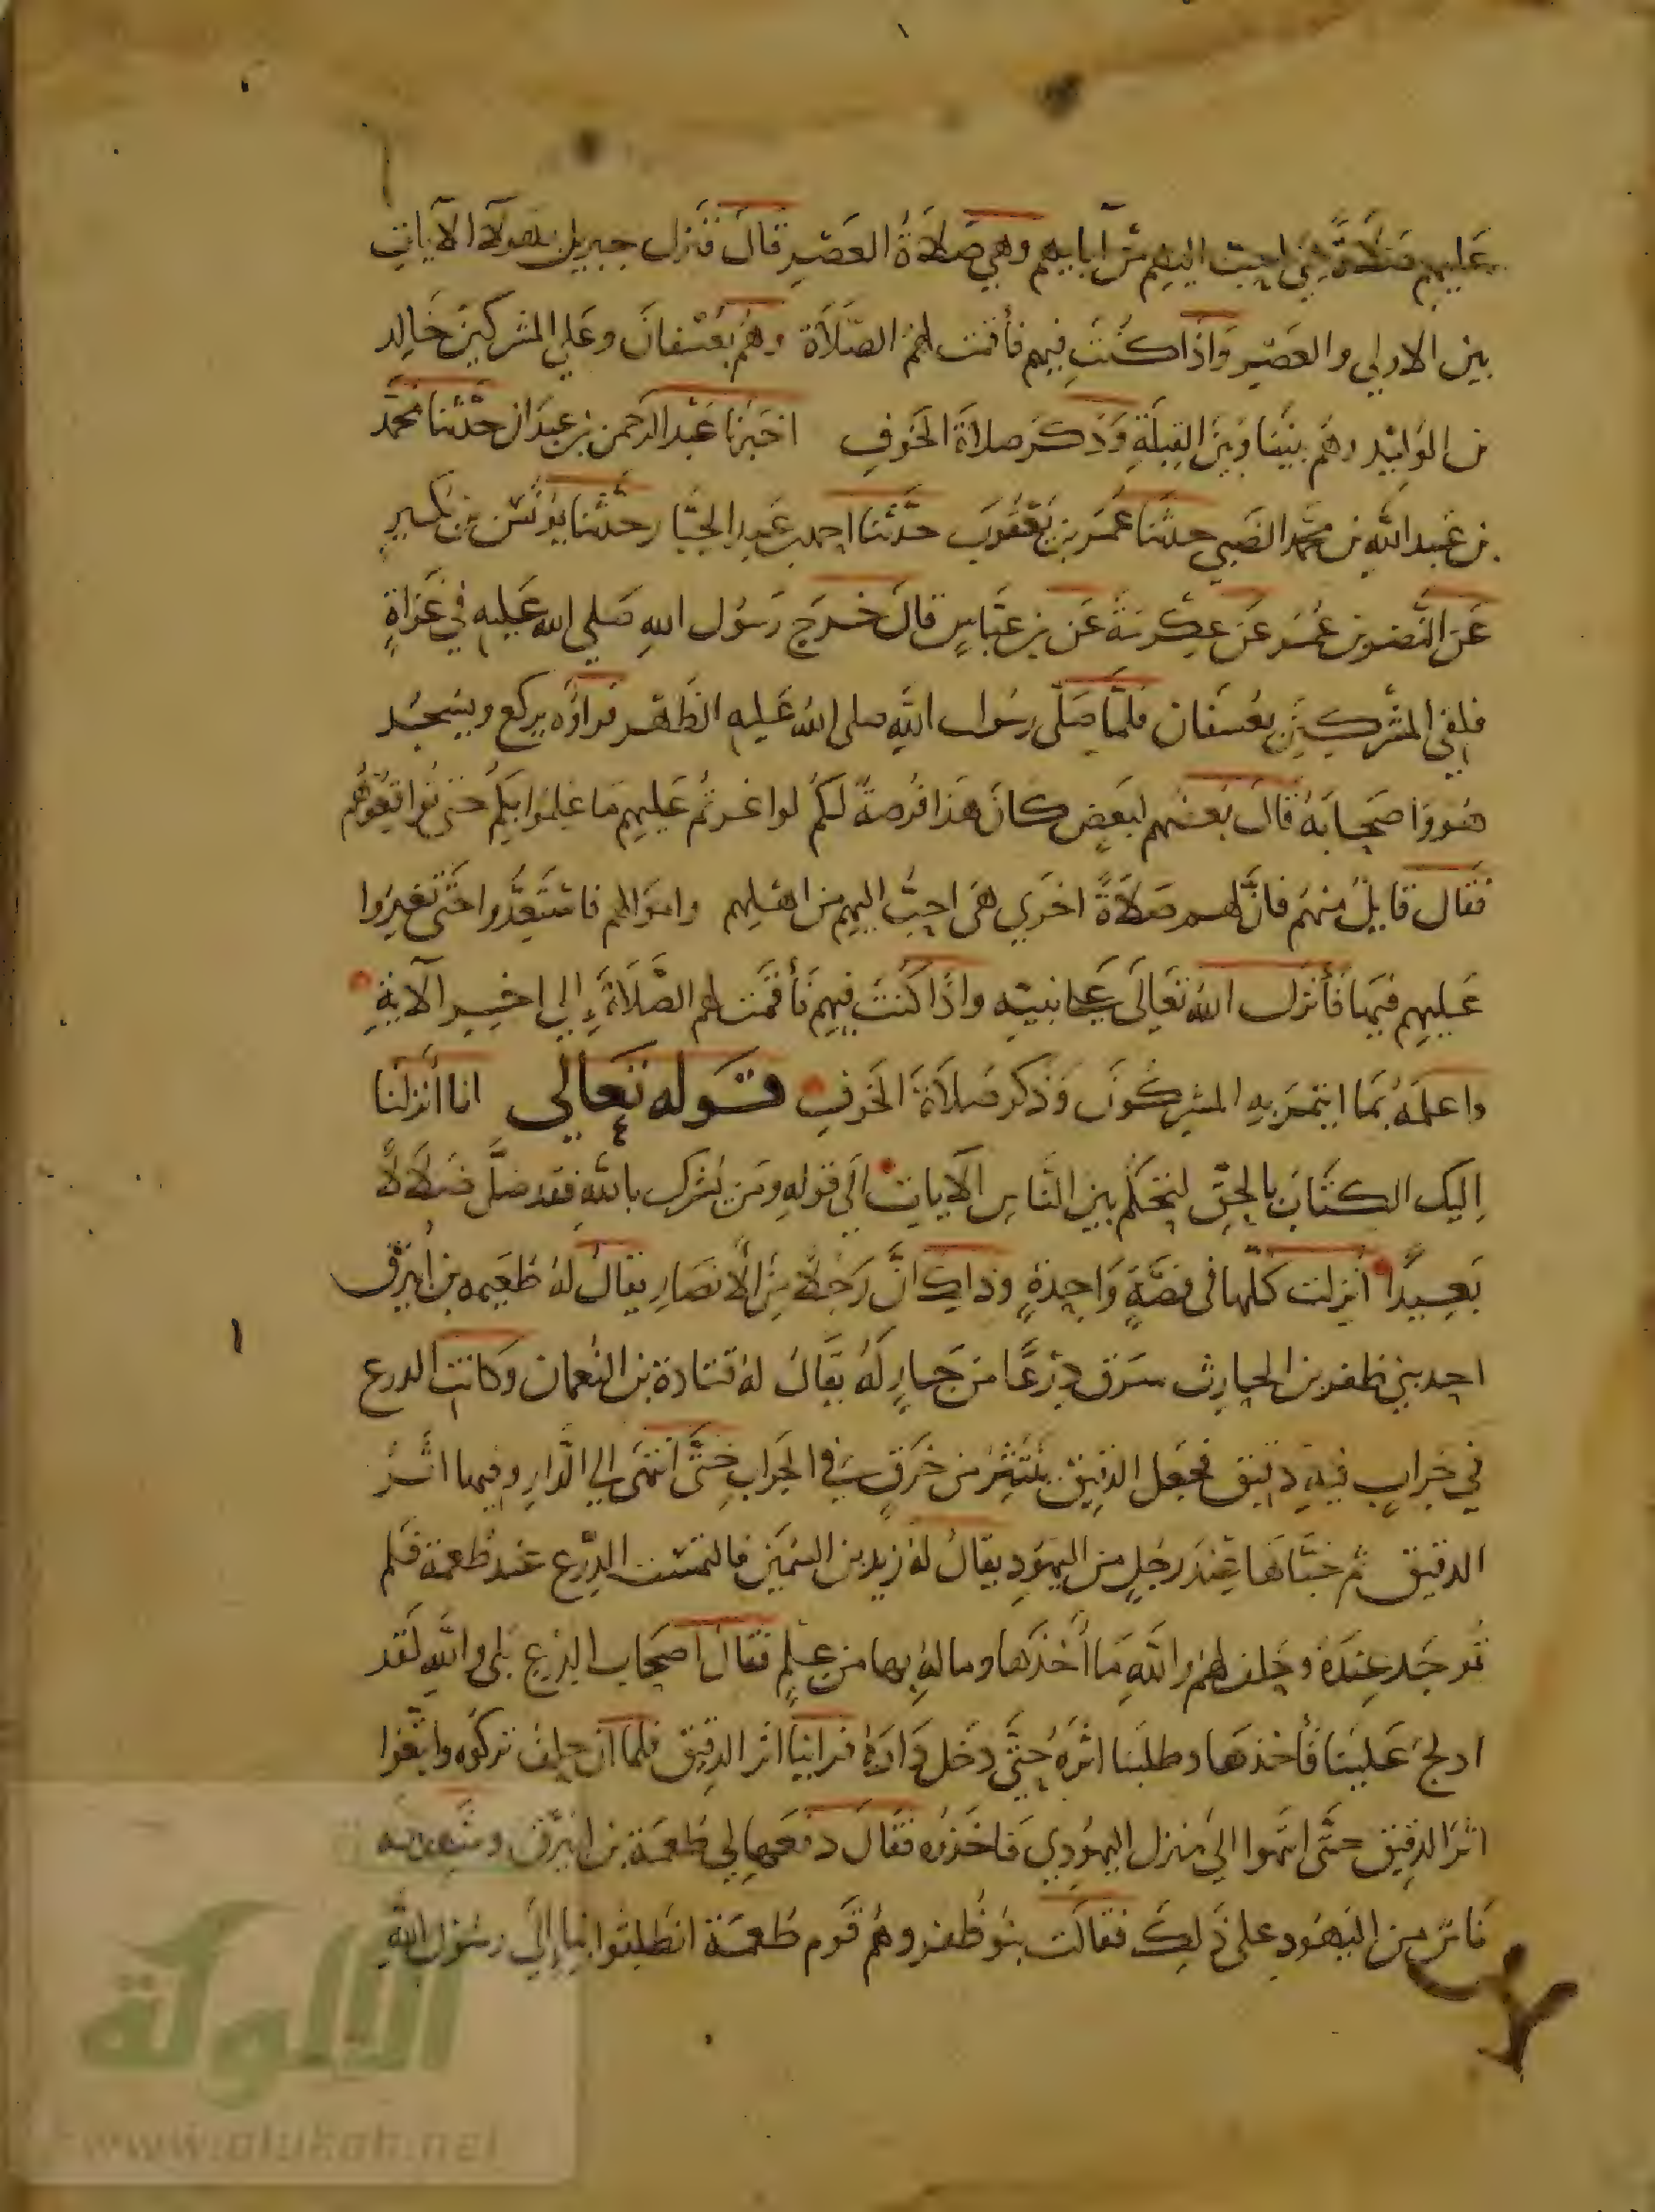 عليهم صلاة هي احب اليهم من آبايهم وهي صلاة العصر قال فنزل جبريل بهولآء الآيات
بين الاولي والعصر واذا كنت فيهم فأقمت لهم الصلاة وهم بعسفان وعلي المشركين خالد
بن الوليد وهم بيننا وبين القبلة وذكر صلاة الخوف اخبرنا عبد الرحمن بن عبدان حدثنا محمد
بن عبد الله بن محمد الضبي حدثنا محمد بن يعقوب حدثنا احمد بن عبد الجبار حدثنا يونس بن بكير
عن النضر بن عمر عن عكرمة عن بن عباس قال خرج رسول الله صلي الله عليه في غزاة
فلقي المشركين بعسفان فلما صلى رسول الله صلى الله عليه الظهر فراوه يركع ويسجد
هو واصحابه قال بعضهم لبعض كان هذا فرصة لكم لو اغرتم عليهم ما علموا بكم حتى تواقعوهم
فقال قايل منهم فان لهم صلاة اخري هي احب اليهم من اهلهم واموالهم فاستعدوا حتى تغيروا
عليهم فيها فأنزل الله تعالى على نبيه واذا كنت فيهم فأقمت لهم الصلاة إلي اخر الآية
واعلمه بما ايتمر به المشركون وذكر صلاة الخوف قوله تعالي انا انزلنا
اليك الكتاب بالحق لتحكم بين الناس الآيات الي قوله ومن يشرك بالله فقد ضل ضلالا
بعيدا أنزلت كلها في قصة واحدة وذلك ان رجلا من الأنصار يقال له طعيمه بن أبيرق
احد بني ظفر بن الحارث سرق درعا من جار له يقال له قتادة بن النعمان وكانت الدرع
في جراب فيه دقيق فجعل الدقيق ينتثر من خرق في الجراب حتى انتهى الي الدار وفيها اثر
الدقيق ثم خبأها عند رجل من اليهود يقال له زيد بن السمين فالتمست الدرع عند طعمة فلم
توجد عنده وحلف لهم والله ما أخذها وما له بها من علم فقال اصحاب الدرع بلى والله لقد
ادلج علينا فأخذها وطلبنا اثره حتى دخل داره فراينا اثر الدقيق فلما ان حلف تركوه واتبعوا
اثر الدقيق حتى انتهوا الي منزل اليهودي فاخذوه فقال دفعها الي طعمة بن ابيرق وشهد له
ناس من اليهود على ذلك فقالت بنو ظفر وهم قوم طعمة انطلقوا بنا إلى رسول الله
الألوكة
www.alukah.net